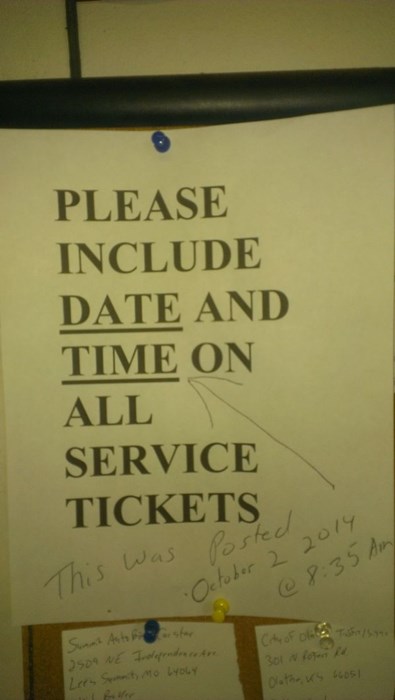 PLEASE
INCLUDE
DATE AND
TIME ON
ALL
SERVICE
TICKETS
This was Posted
October 2 2014
@ 8:35 Am
2509 NE Independence Ave
Lees Summit, MO 64064
City of
301 N Rd
Olathe, KS 66051